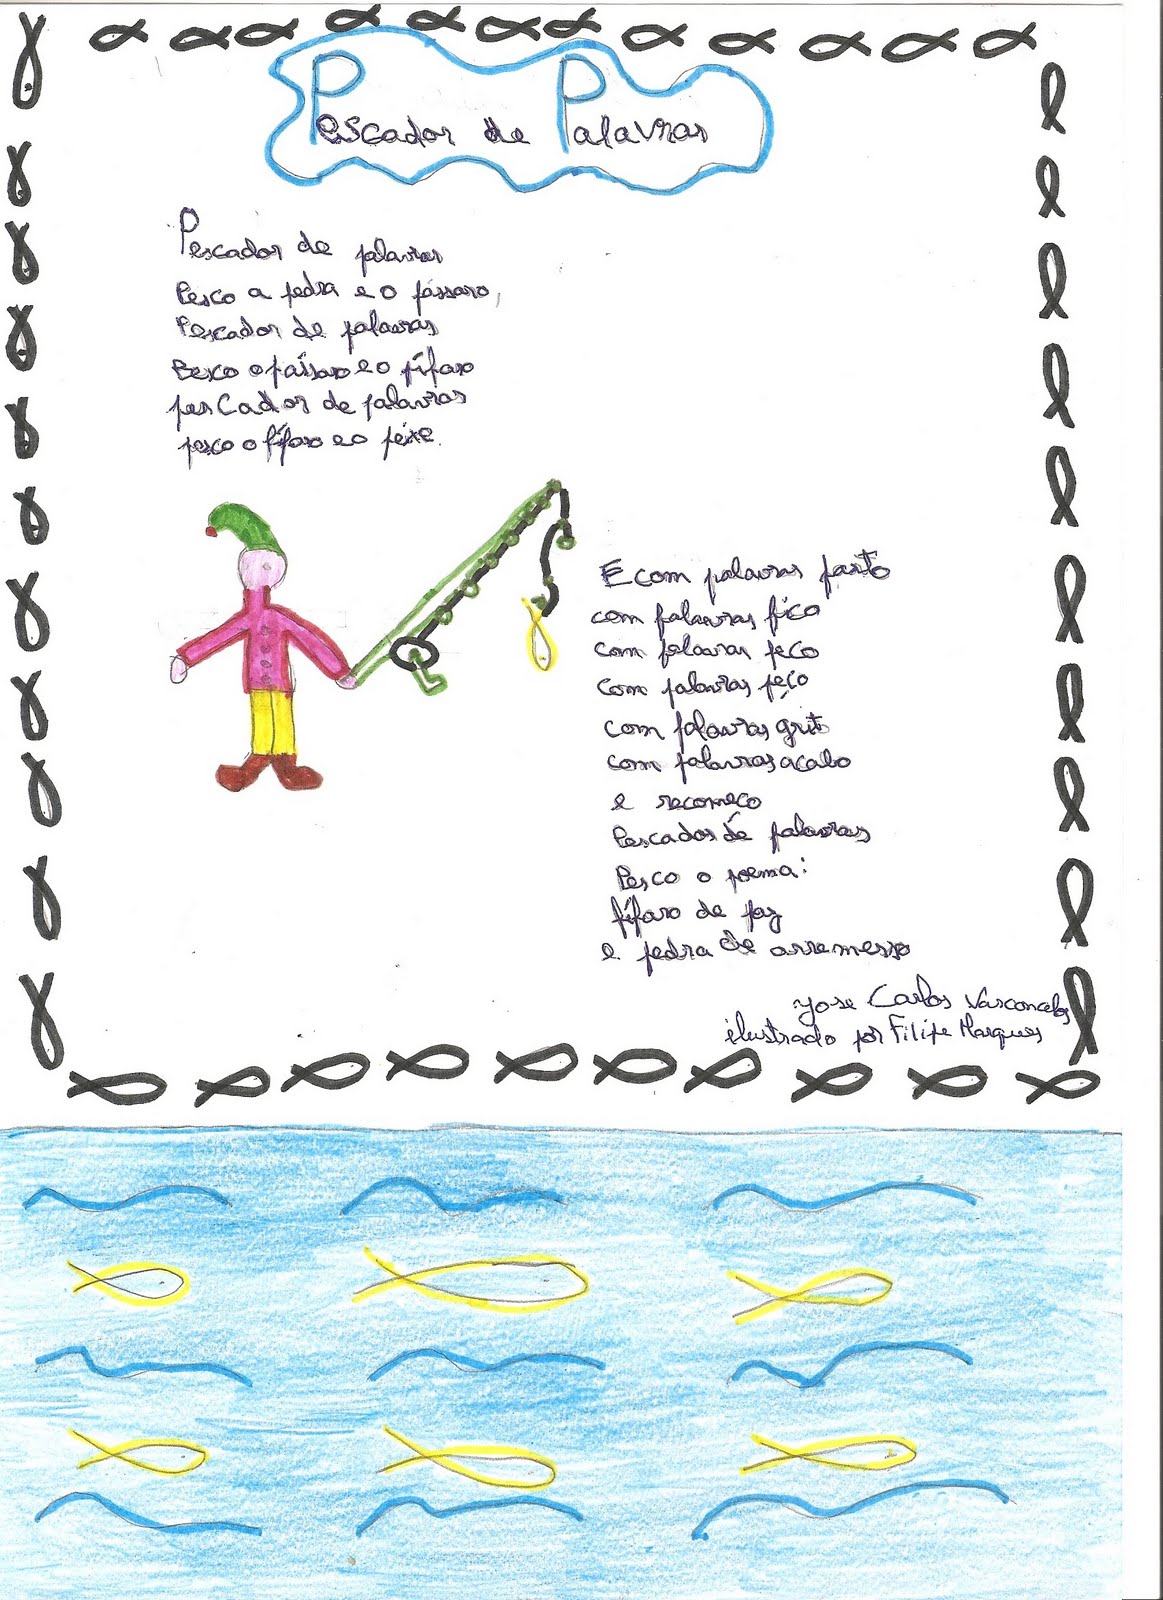 Pescador de Palavras
Pescador de palavras
Pesco a pedra e o pássaro,
Pescador de palavras
Pesco o pássaro e o pífaro
pescador de palavras
pesco o pífaro e o peixe.
E com palavras parto
com palavras fico
com palavras peco
com palavras peço
com palavras grito
com palavras acabo
e recomeço
Pescador de palavras
Pesco o poema:
pífaro de paz
e pedra de arremesso
Jose Carlos Vasconcelos
ilustrado por Filipe Marques